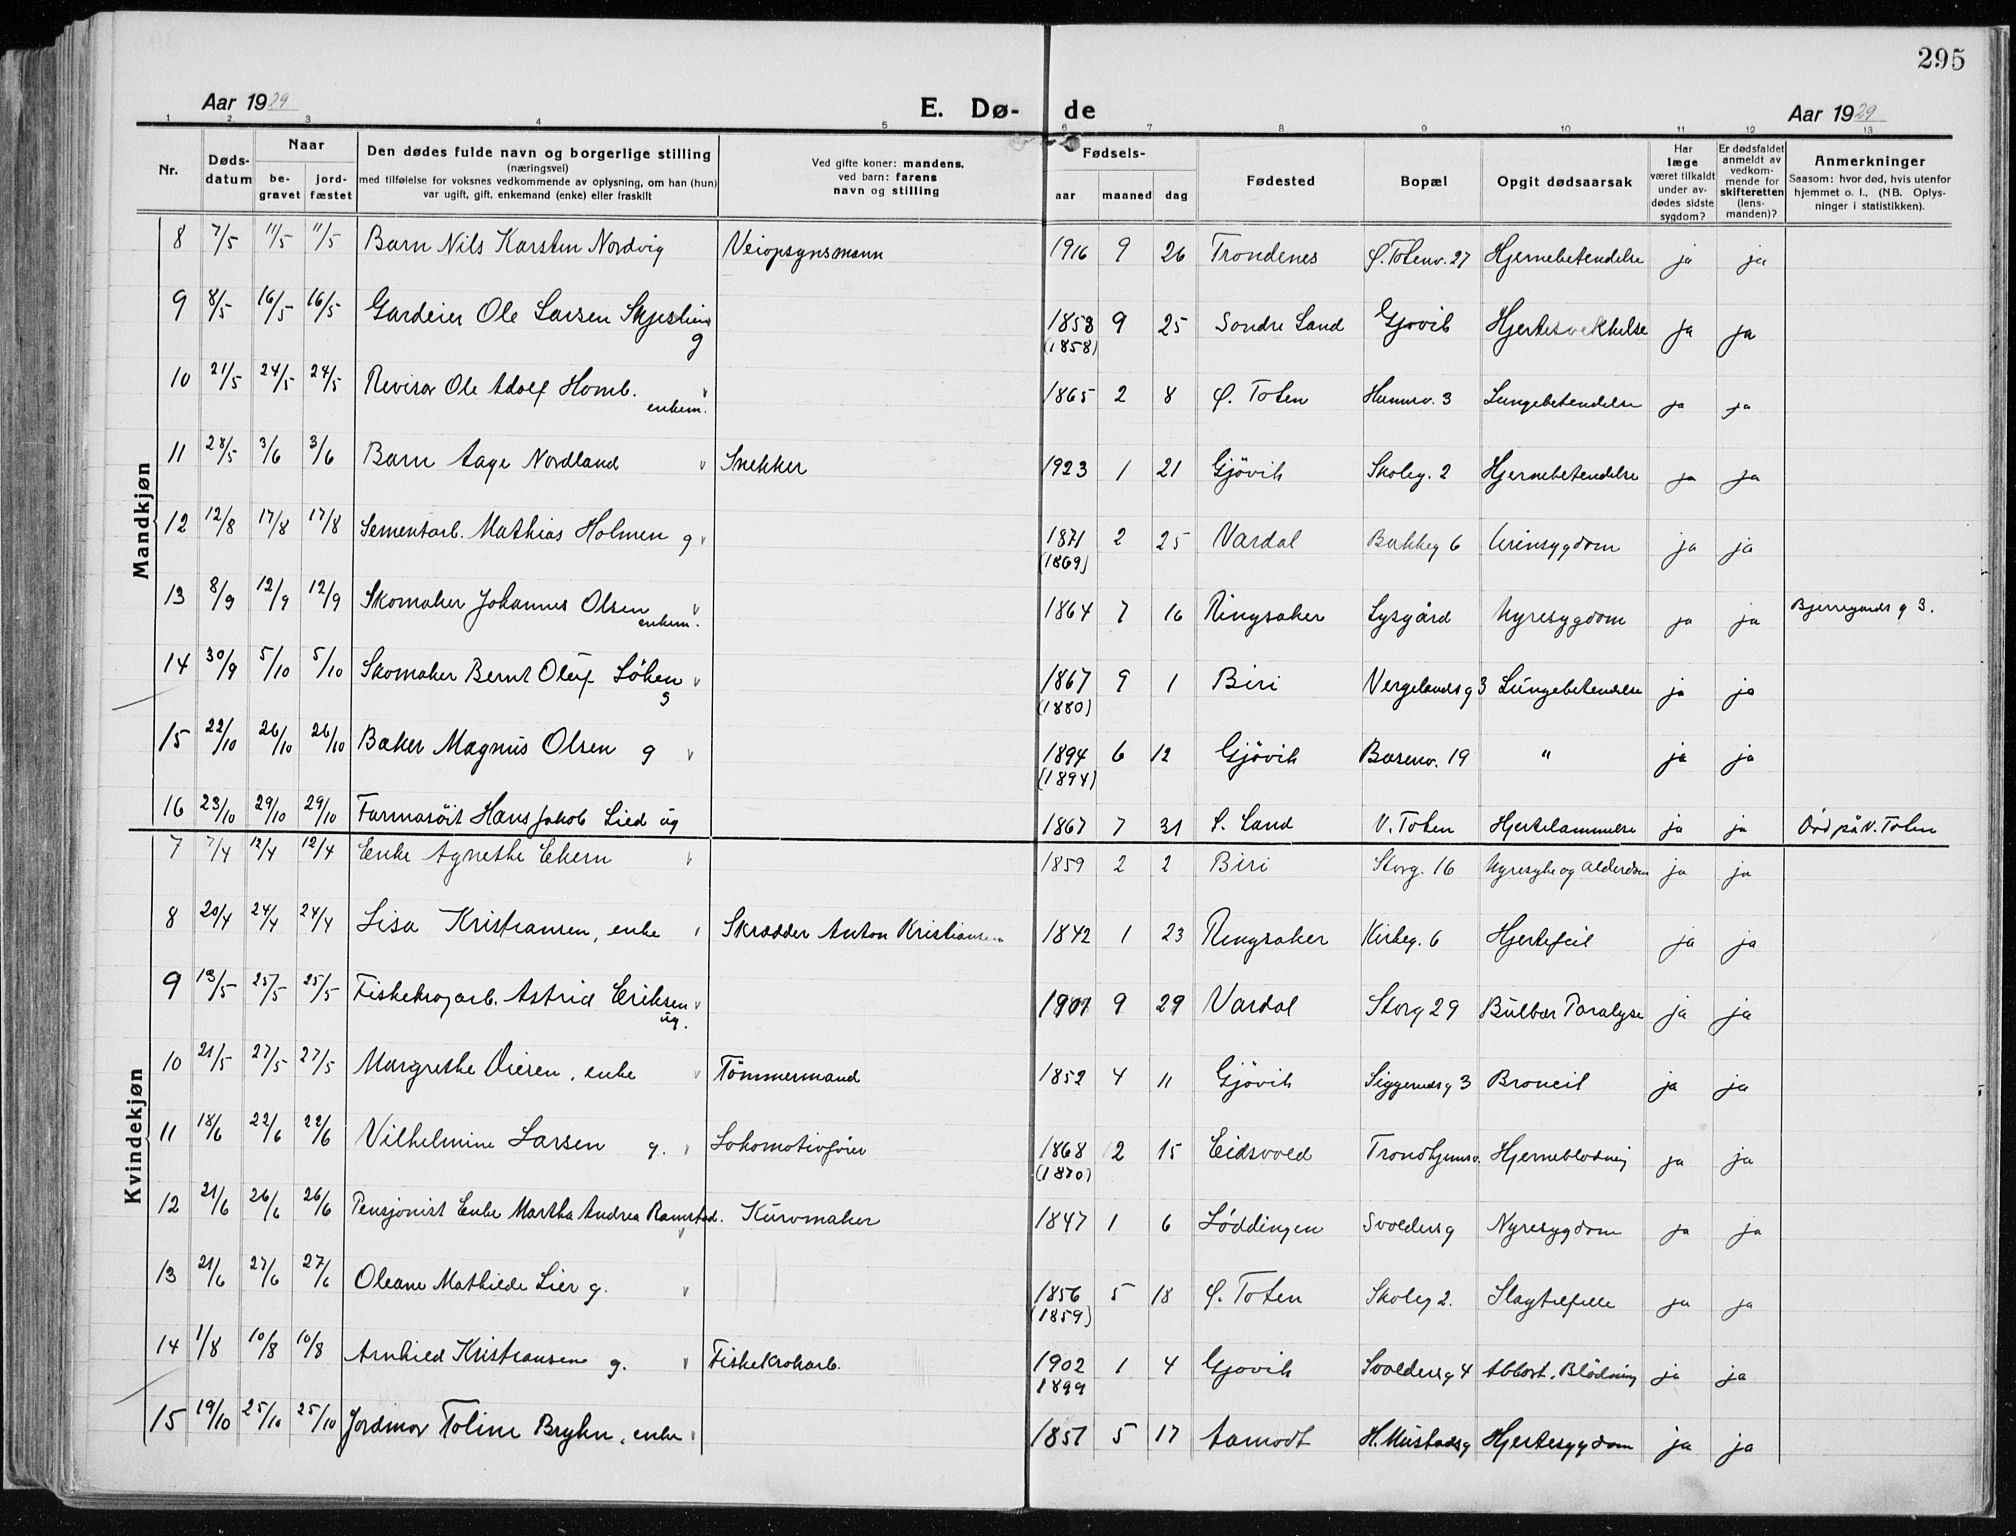 295
Aar 1929 E. Dø- de Aar 1929
1 2 3 4 5 6 7 8 9 10 11 12 13
Nr.
Døds-
datum
Naar
be-
gravet
jord-
fæstet
Den dødes fulde navn og borgerlige stilling
(næringsvei)
med tilføielse for voksnes vedkommende av oplysning, om han (hun)
var ugift, gift, enkemand (enke) eller fraskilt
Ved gifte koner: mandens,
ved barn: farens
navn og stilling
Fødsels-
aar maaned dag
Fødested
Bopæl
Opgit dødsaarsak
Har
læge
været tilkaldt
under av-
dødes sidste
sygdom?
Er dødsfaldet
anmeldt av
vedkom-
mende for
skifteretten
(lens-
manden)?
Anmerkninger
Saasom: hvor død, hvis utenfor
hjemmet o. l., (NB. Oplys-
ninger i statistikken).
Mandkjøn
8 7/5 11/5 11/5 Barn Nils Karsten Nordvig Veiopsynsmann 1916 9 26 Trondenes Ø. Totenv. 27 Hjernebetendelse ja ja
9 8/5 16/5 16/5 Gardeier Ole Larsen Skjeslien g 1858 9 25 Søndre Land Gjøvik Hjertesvekkelse ja ja
(1858)
10 21/5 24/5 24/5 Revisor Ole Adolf Homb. enkem. v 1865 2 8 Ø. Toten Hunnsv. 3 Lungebetendelse ja ja
11 28/5 3/6 3/6 Barn Aage Nordland v Snekker 1923 1 21 Gjövik Skoleg. 2 Hjernebetendelse ja ja
12 12/8 17/8 17/8 Sementarb. Mathias Holmen g v 1871 2 25 Vardal Bakkeg 6 Urinsygdom ja ja
(1869)
13 8/9 12/9 12/9 Skomaker Johannes Olsen enkem. v 1864 7 16 Ringsaker Lysgård Nyresygdom ja ja Bjerregaards g 3.
14 30/9 5/10 5/10 Skomaker Bernt Oluf Löken g v 1867 9 1 Biri Vergelandsg 3 Lungebetendelse ja ja
(1880)
15 22/10 26/10 26/10 Baker Magnus Olsen g v 1894 6 12 Gjövik Basenv. 19 " ja ja
(1894)
16 23/10 29/10 29/10 Farmasöit Hans Jakob Lied ug 1867 7 31 S. Land V. Toten Hjertelammelse ja ja Död på V. Toten
Kvindekjøn
7 7/4 12/4 12/4 Enke Agnethe Ekern v 1859 2 2 Biri Storg. 16 Nyresyke og Alderdom ja ja
8 20/4 24/4 24/4 Lisa Kristiansen, enke Skrædder Anton Kristiansen 1842 1 23 Ringsaker Kirkeg. 6 Hjertefeil ja ja
9 13/5 25/5 25/5 Fiskekrogarb. Astrid Eriksen ug. v 1901 9 29 Vardal Storg 29 Bulbær Paralyse ja ja
10 21/5 27/5 27/5 Margrethe Öieren, enke v Tömmermand 1852 4 11 Gjövik Siggerudsg 3 Broncit ja ja
11 18/6 22/6 22/6 Vilhelmine Larsen g. v Lokomotivförer 1868 2 15 Eidsvold Trondhjemsv. Hjerneblodning ja ja
(1870)
12 21/6 26/6 26/6 Pensjonist Enke Martha Andrea Ramstad. v Kurvmaker 1847 1 6 Löddingen Svoldersg Nyresygdom ja ja
13 21/6 27/6 27/6 Oleane Mathilde Lier g. v 1856 5 18 Ø. Toten Skoleg 2. Slagtilfelle ja ja
(1859)
14 1/8 10/8 10/8 Arnhild Kristiansen g. v Fiskekrokarb. 1902 1 4 Gjövik Svoldersg 4 Abbort. Blödning ja ja
1899
15 19/10 25/10 25/10 Jordmor Toline Bryhn, enke v 1857 5 17 Aamodt H. Mustadsg Hjertesygdom ja ja